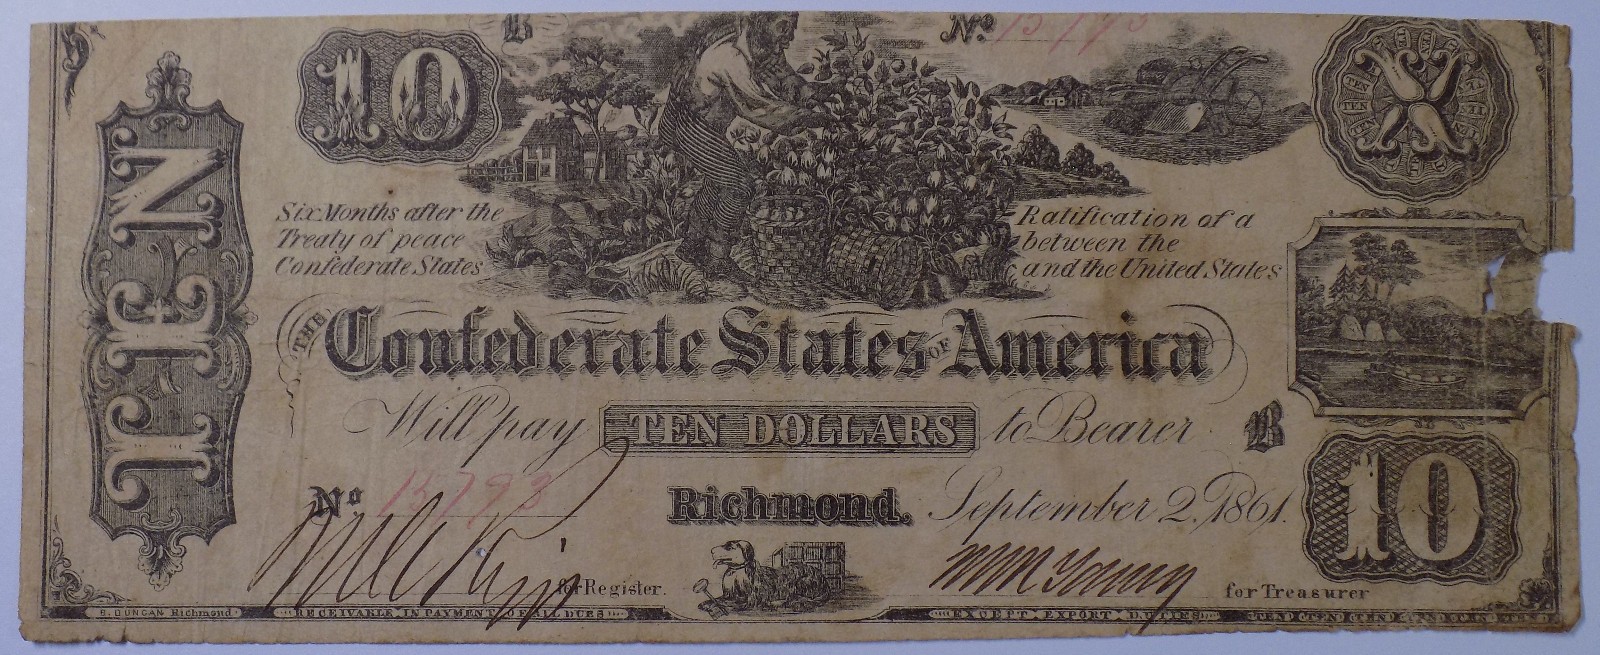 B
Nº 15793
10
TEN
X
Six Months after the
Treaty of peace
Confederate States
Ratification of a
between the
and the United States
THE Confederate States OF America
Will pay TEN DOLLARS to Bearer B
Nº 15793
Richmond, September 2, 1861.
10
for Register.
Wm M Young for Treasurer
B. DUNCAN Richmond
RECEIVABLE IN PAYMENT OF ALL DUES
EXCEPT EXPORT DUTIES